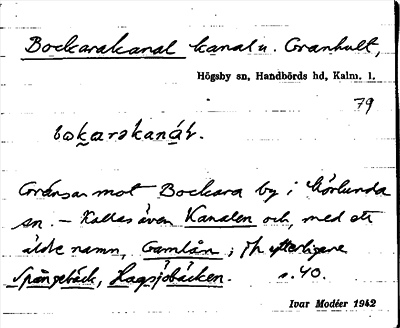 Bockarakanal kanal u. Granhult,
Högsby sn, Handbörds hd, Kalm. l.
79
bokarakanál.
Gränsar mot Bockara by i Mörlunda
sn. – Kallas även Kanalen och, med ett
äldre namn, Gamlån; jfr ytterligare
Spångebäck, Hagsjöbäcken. s. 40.
Ivar Modéer 1942